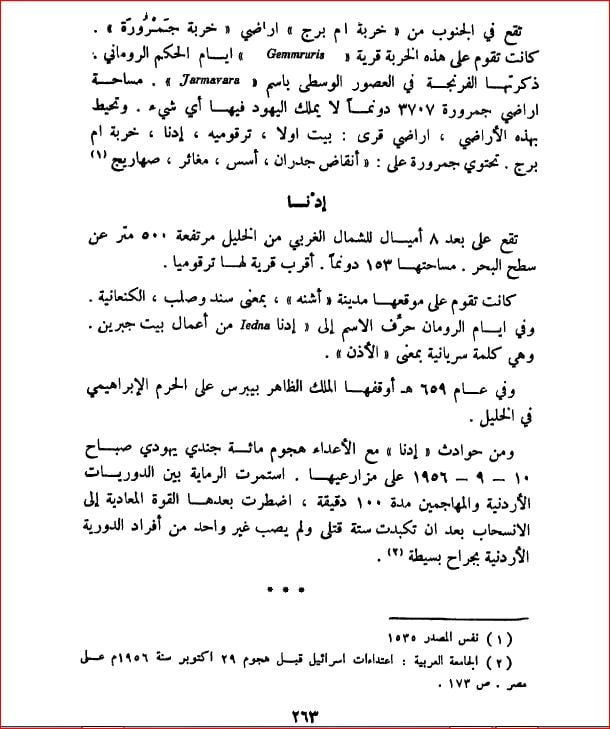 تقع في الجنوب من « خربة ام برج » اراضي « خربة جَمْرُورَة » .
كانت تقوم على هذه الخربة قرية « Gemmruris » ايام الحكم الروماني .
ذكرتها الفرنجة في العصور الوسطى باسم « Jarmavara » . مساحة
اراضي جمرورة ٣٧٠٧ دونماً لا يملك اليهود فيها أي شيء . وتحيط
بهذه الأراضي ، اراضي قرى : بيت اولا ، ترقوميه ، إدنا ، خربة ام
برج . تحتوي جمرورة على : « أنقاض جدران ، أسس ، مغائر ، صهاريج (١)
إدْنـا
تقع على بعد ٨ أميال للشمال الغربي من الخليل مرتفعة ٥٠٠ متر عن
سطح البحر . مساحتها ١٥٣ دونماً . أقرب قرية لها ترقوميا .
كانت تقوم على موقعها مدينة « أشنه » ، بمعنى سند وصلب ، الكنعانية .
وفي ايام الرومان حرَّف الاسم إلى « إدنا Iedna من أعمال بيت جبرين .
وهي كلمة سريانية بمعنى « الأذن » .
وفي عام ٦٥٩ هـ أوقفها الملك الظاهر بيبرس على الحرم الإبراهيمي
في الخليل .
ومن حوادث « إدنا » مع الأعداء هجوم مائة جندي يهودي صباح
١٠ – ٩ – ١٩٥٦ على مزارعيها . استمرت الرماية بين الدوريات
الأردنية والمهاجمين مدة ١٠٠ دقيقة ، اضطرت بعدها القوة المعادية إلى
الانسحاب بعد ان تكبدت ستة قتلى ولم يصب غير واحد من أفراد الدورية
الأردنية بجراح بسيطة (٢) .
* * *
(١) نفس المصدر ١٥٣٥
(٢) الجامعة العربية : اعتداءات اسرائيل قبل هجوم ٢٩ اكتوبر سنة ١٩٥٦م على
مصر . ص ١٧٣ .
٢٦٣